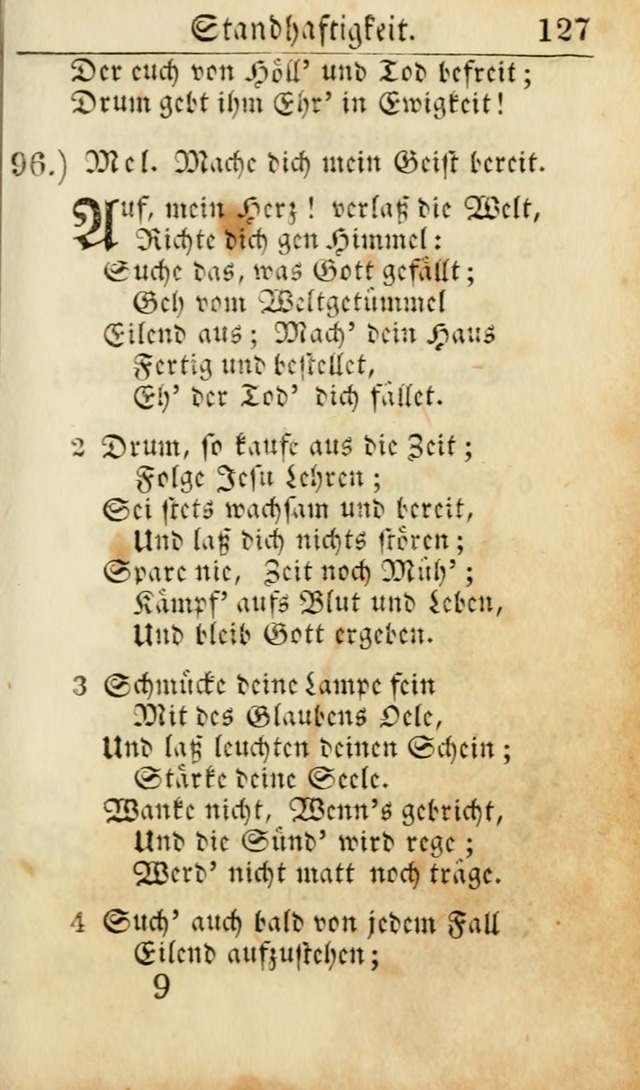 Standhaftigkeit. 127
Der euch von Höll' und Tod befreit;
Drum gebt ihm Ehr' in Ewigkeit!
96.) Mel. Mache dich mein Geist bereit.
Auf, mein Herz! verlaß die Welt,
Richte dich gen Himmel:
Suche das, was Gott gefällt;
Geh vom Weltgetümmel
Eilend aus; Mach' dein Haus
Fertig und bestellet,
Eh' der Tod' dich fället.
2 Drum, so kaufe aus die Zeit;
Folge Jesu Lehren;
Sei stets wachsam und bereit,
Und laß dich nichts stören;
Spare nie, Zeit noch Müh';
Kämpf' aufs Blut und Leben,
Und bleib Gott ergeben.
3 Schmücke deine Lampe fein
Mit des Glaubens Oele,
Und laß leuchten deinen Schein;
Stärke deine Seele.
Wanke nicht, Wenn's gebricht,
Und die Sünd' wird rege;
Werd' nicht matt noch träge.
4 Such' auch bald von jedem Fall
Eilend aufzustehen;
9